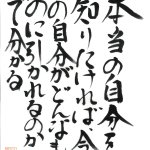 本当の自分を
知りたければ、今
の自分がどんなも
のに引かれるのか
で分かる